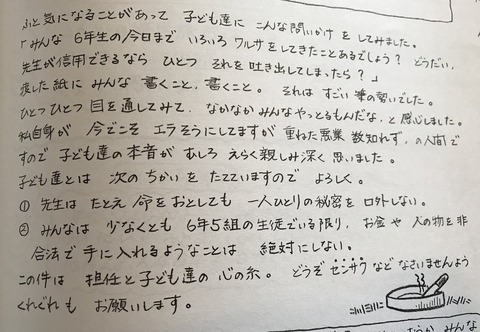 ふと気になることがあって 子ども達に こんな問いかけ をしてみました。
「みんな 6年生の今日まで いろいろ ワルサをしてきたことあるでしょう? どうだい、
先生が信用できるなら ひとつ それを吐き出してしまったら?」
渡した紙に みんな 書くこと、書くこと。 それは すごい 筆の勢いでした。
ひとつひとつ 目を通してみて、 なかなかみんなやっとるもんだな、と感心しました。
私自身が 今でこそ エラそうにしてますが 重ねた悪業 数知れず、の人間で
すので 子ども達の本音が むしろ えらく親しみ深く 思いました。
子ども達とは 次の ちかい を たてていますので よろしく。
① 先生は たとえ 命をおとしても 一人ひとりの秘密を 口外しない。
② みんなは 少なくとも 6年5組の生徒でいる限り、お金や 人の物を非
合法で手に入れるようなことは 絶対にしない。
この件は 担任と子ども達の 心の糸。 どうぞ センサクなど なさいませんよう
くれぐれも お願いします。
みんな